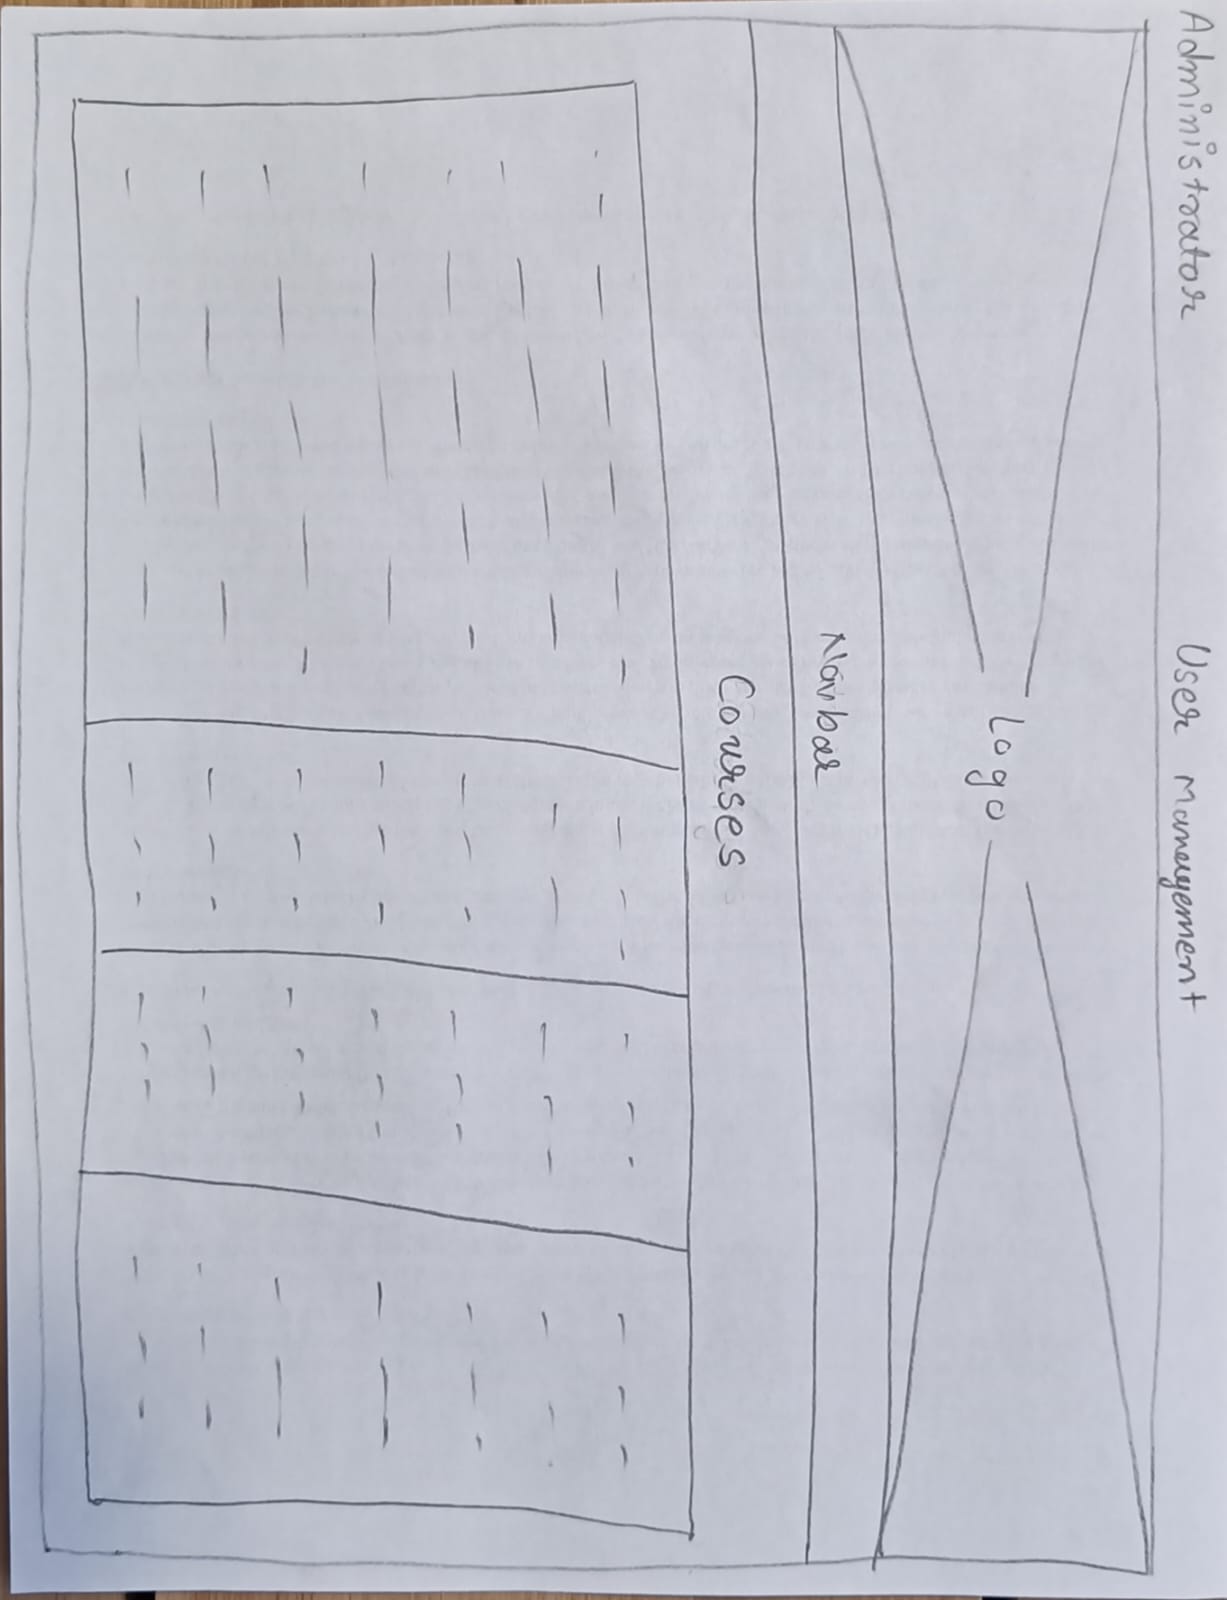 Administrator User Management
Logo
Navbar
Courses